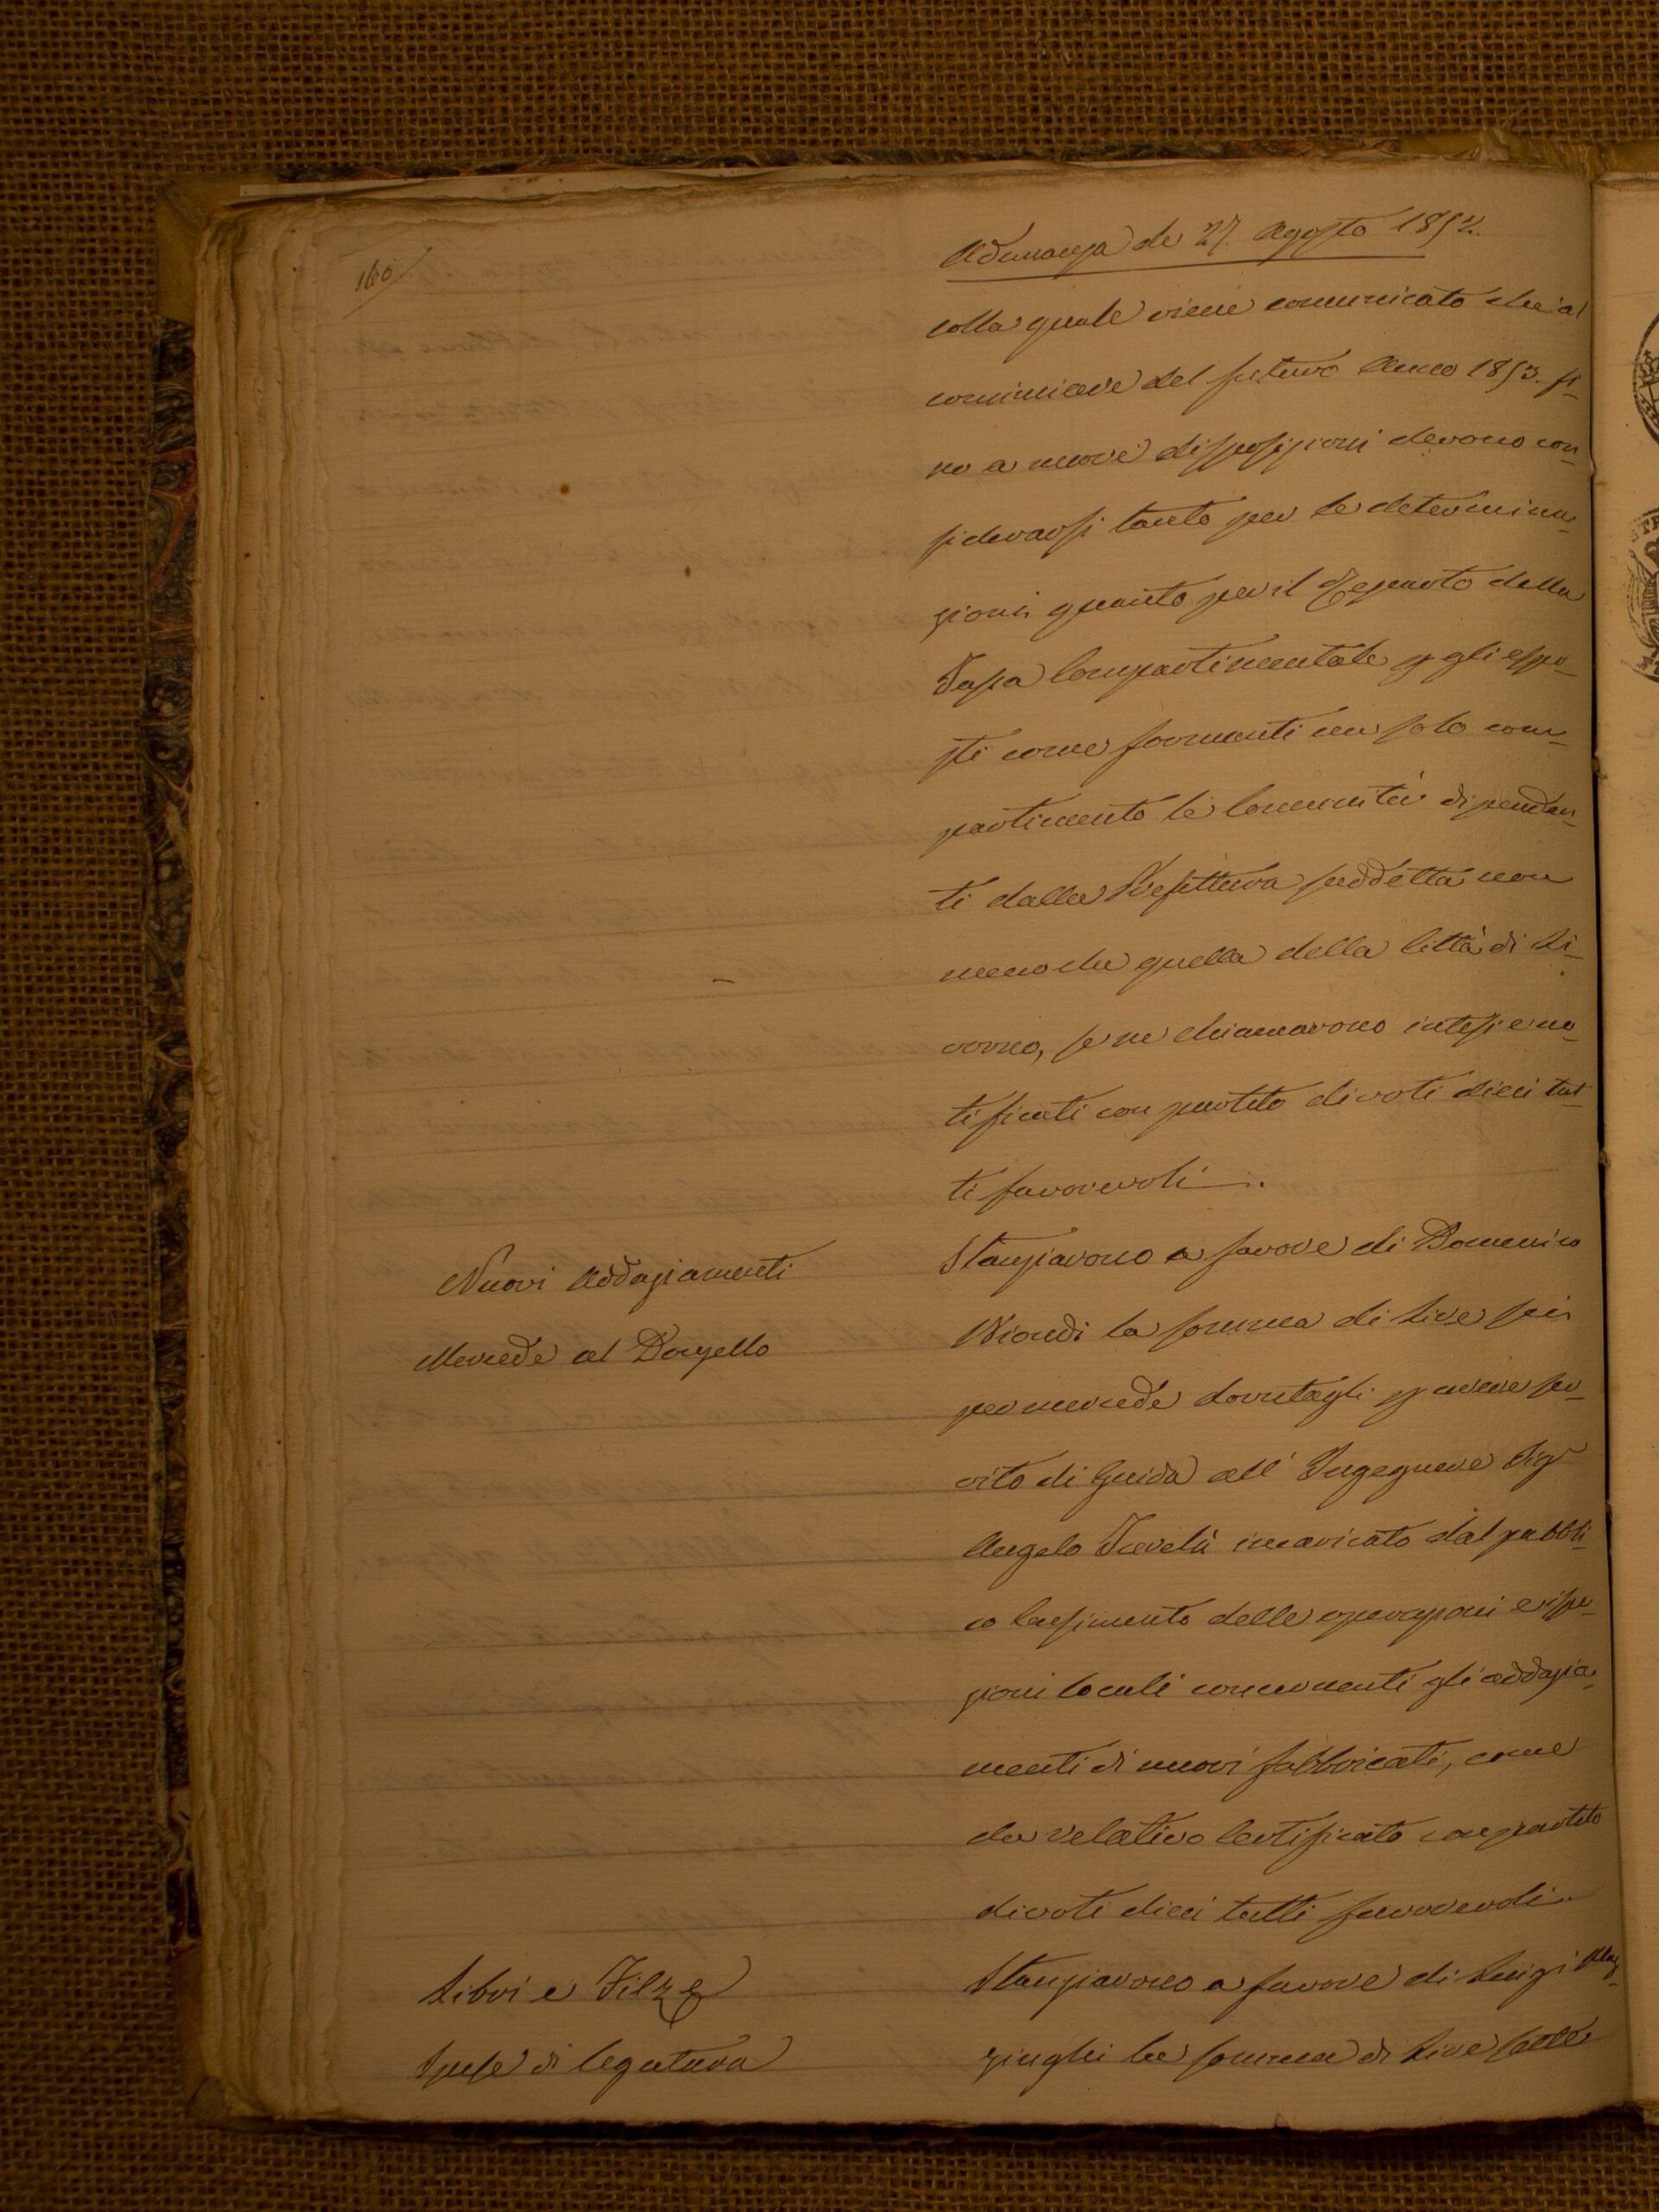 160
Adunanza de 27. Agosto 1852.
colla quale viene comunicato che al
cominciare del futuro Anno 1853. si
no a nuove disposizioni devono con
siderarsi tanto per le determina
zioni quanto per il Reparto della
Tassa Compartimentale p gli espo
sti come formanti un solo com
partimento le Comunità dipenden
ti dalla Prefettura suddetta non
meno che quella della Città di Li
vorno, se ne chiamarono intesi e no
tificati con partito di voti dieci tut
ti favorevoli.
Nuovi Addaziamenti
Mercede al Donzello
Stanziarono a favore di Domenico
Biondi la somma di Lire sei
per mercede dovutagli p avere ser
vito di Guida all' Ingegnere Sigr
Angelo incaricato dal pubbli
co Censimento delle operazioni e ispe
zioni locali concernenti gli addazia
menti di nuovi fabbricati, come
da relativo Certificato con partito
di voti dieci tutti favorevoli.
Libri e Filze
Spese di legatura
Stanziarono a favore di Luigi Maz
zinghi la somma di Lire sette